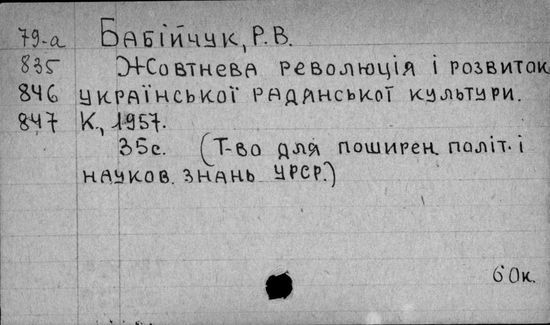 79-а Бабійчук, Р.В.
835 Жовтнева революція і розвиток
846 української радянської культури.
847 К., 1957.
35с. (Т-во для поширен. політ. і
науков. знань УРСР.)
60к.